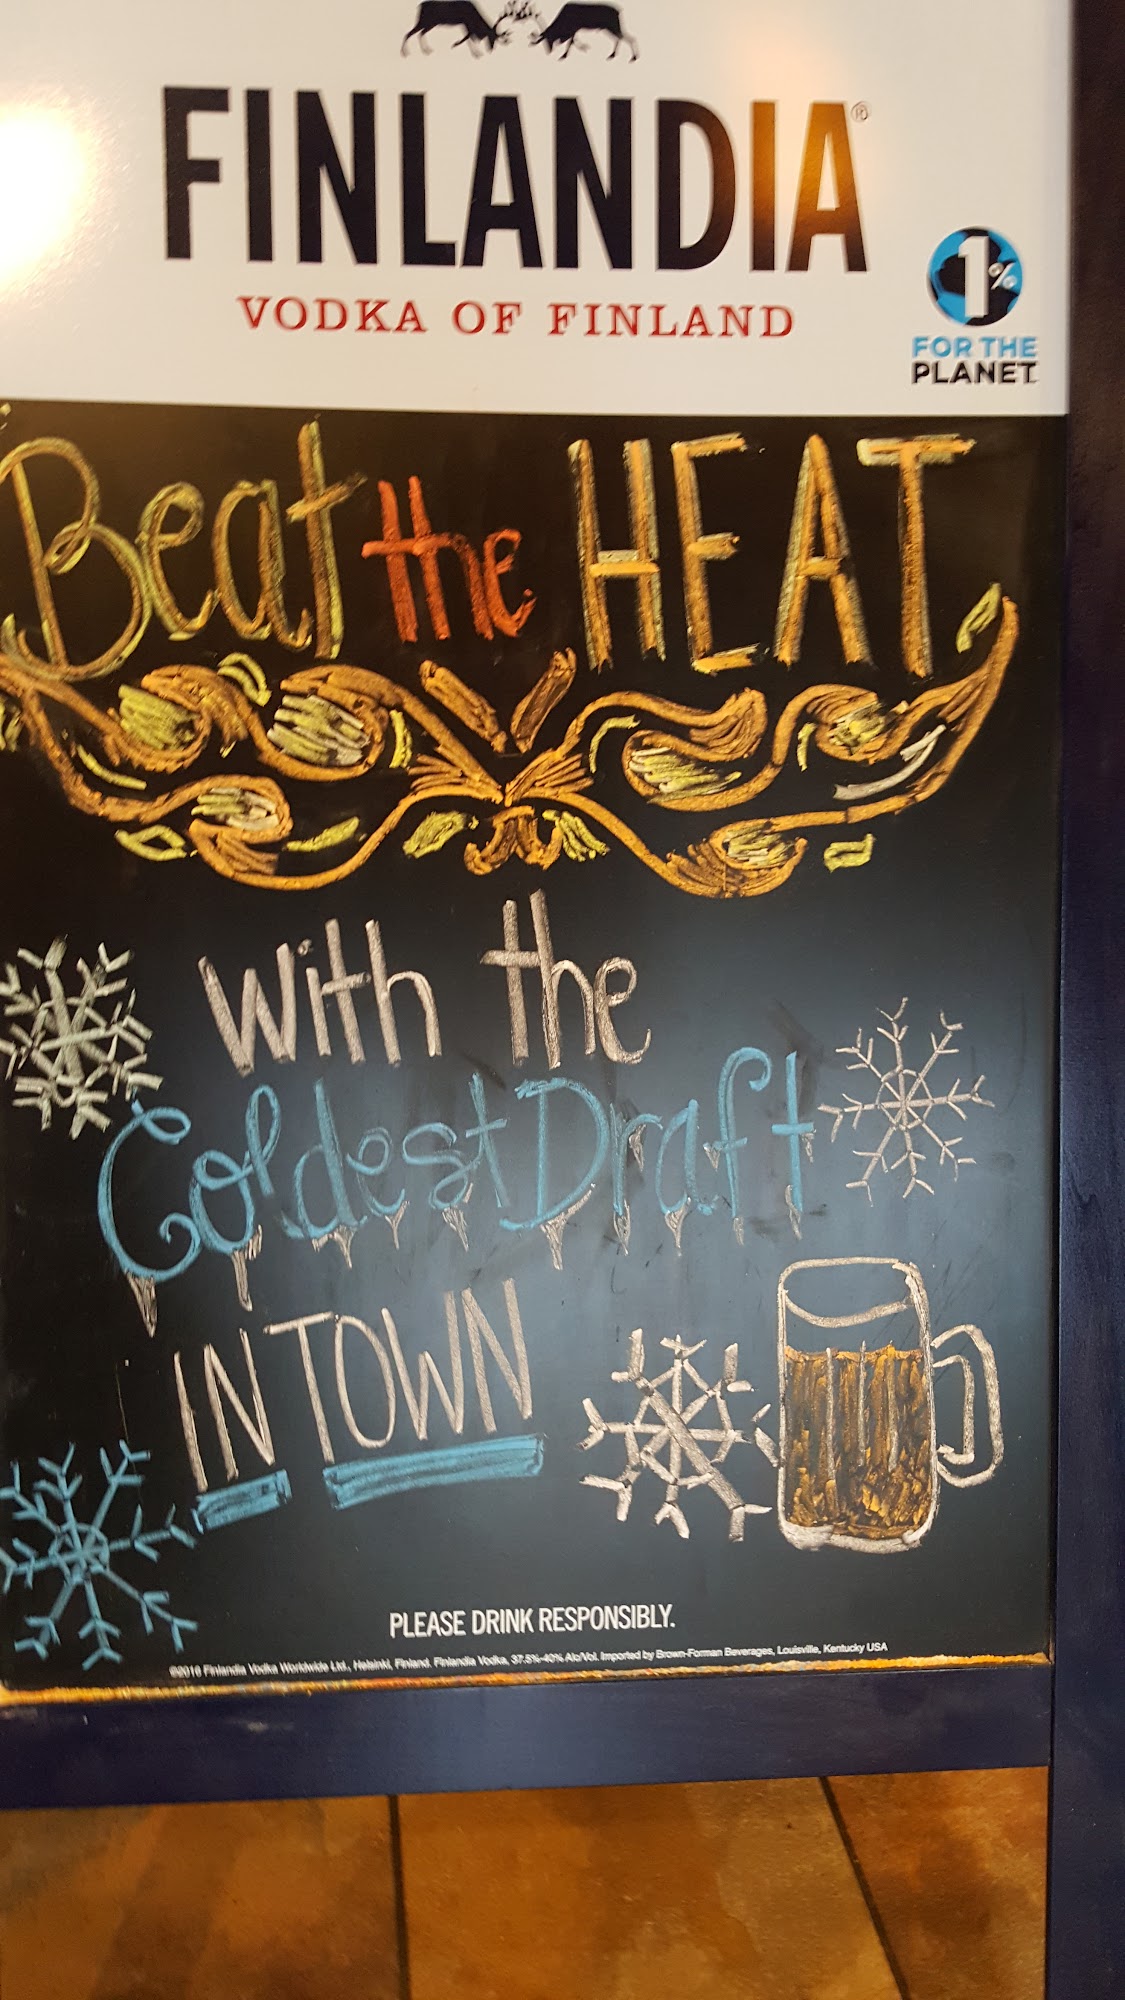 FINLANDIA®
VODKA OF FINLAND
1%
FOR THE
PLANET
Beat the HEAT
With the
Coldest Draft
IN TOWN
PLEASE DRINK RESPONSIBLY.
©2016 Finlandia Vodka Worldwide Ltd., Helsinki, Finland. Finlandia Vodka, 37.5%-40% Alc/Vol. Imported by Brown-Forman Beverages, Louisville, Kentucky USA